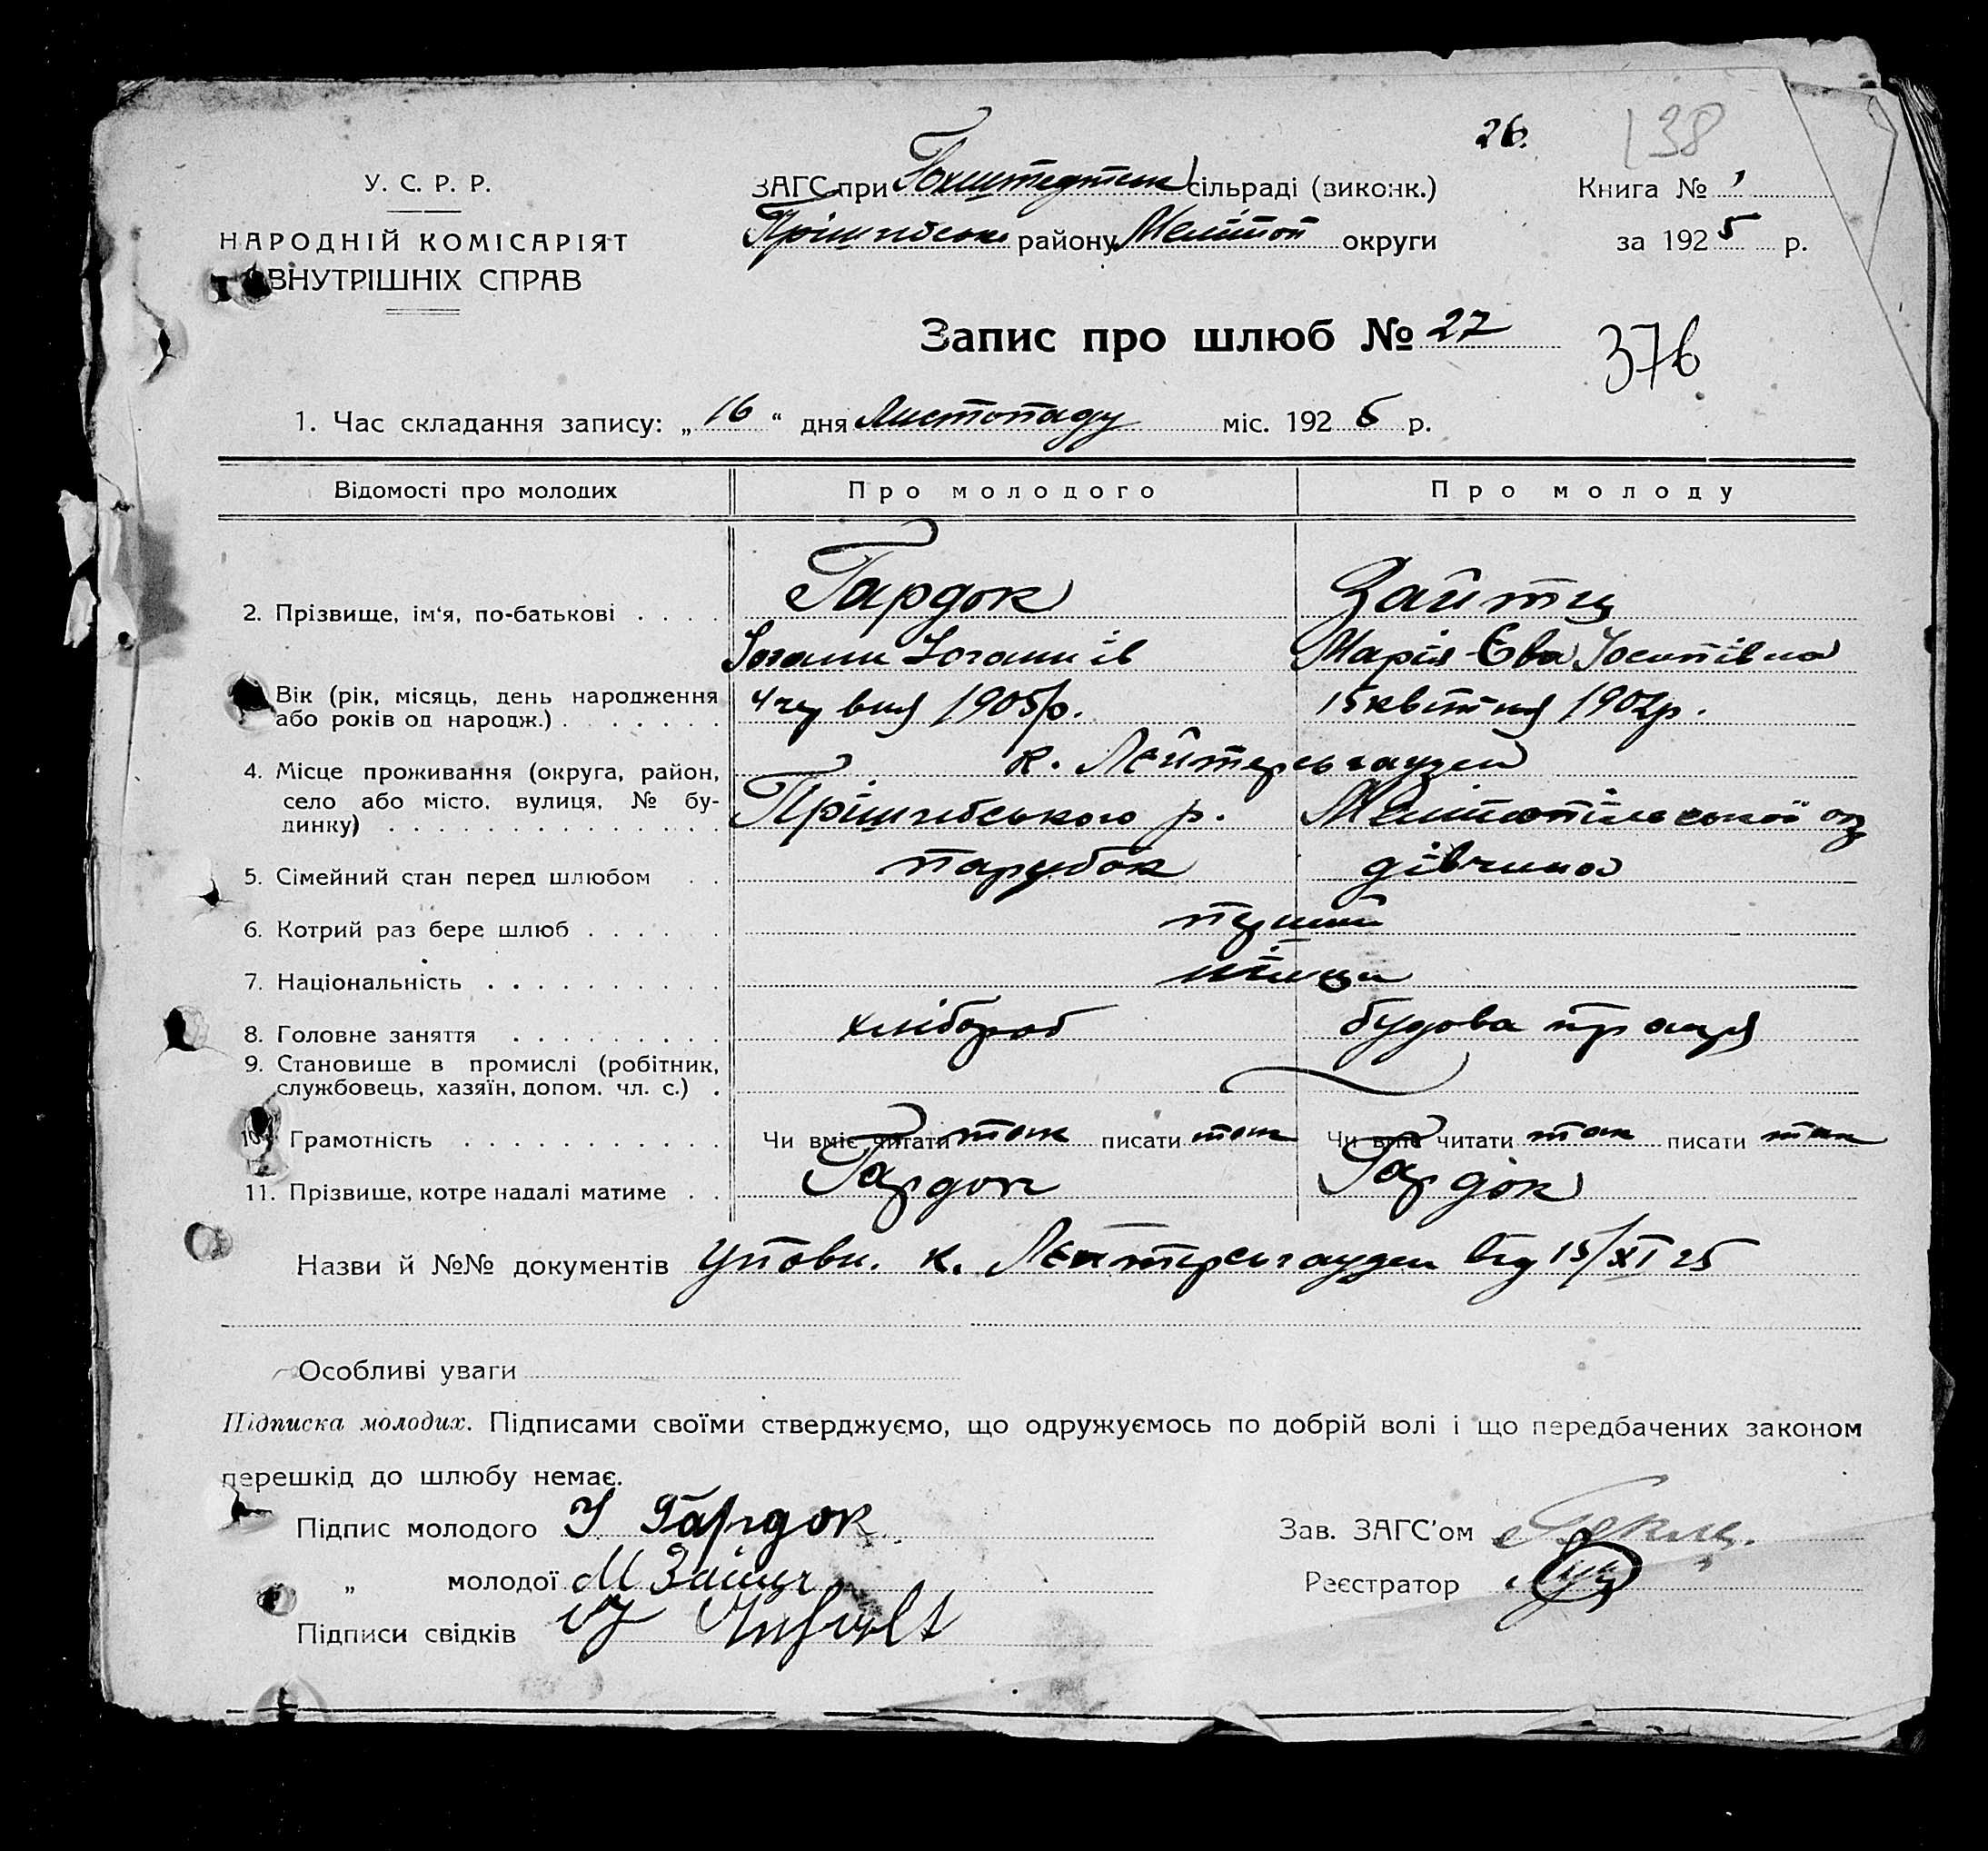 26.
138
У. С. Р. Р.
НАРОДНІЙ КОМІСАРІЯТ
ВНУТРІШНІХ СПРАВ
ЗАГС при Гохштедтськ сільраді (виконк.)
Прішибськ району Меліт́оп округи
Книга № 1
за 1925 р.
Запис про шлюб № 27
376
1. Час складання запису: „16“ дня Листопаду міс. 1925 р.
Відомості про молодих
Про молодого
Про молоду
2. Прізвище, ім'я, по-батькові . . . .
Гардок
Зайтц
Іоганн Іоганнів
Марія-Єва Іосипівна
Вік (рік, місяць, день народження або років од народж.) . . . . . . .
4 червня 1905 р.
15 квітня 1902 р.
4. Місце проживання (округа, район, село або місто, вулиця, № будинку) . . . . . . . . . . . . . .
к. Лєйтерсьгаузен
Прішибського р.
Мелітопільської ок
5. Сімейний стан перед шлюбом . .
парубок
дівчина
6. Котрий раз бере шлюб . . . . . .
перший
7. Національність . . . . . . . . . .
німци
8. Головне заняття . . . . . . . . .
хлібороб
будова праця
9. Становище в промислі (робітник, службовець, хазяїн, допом. чл. с.) .
10. Грамотність . . . . . . . . . . .
Чи вміє читати так писати так
Чи вміє читати так писати так
11. Прізвище, котре надалі матиме . .
Гардок
Гардок
Назви й №№ документів Уповн. к. Лєйтерсьгаузен від 15/XI 25
Особливі уваги
Підписка молодих. Підписами своїми стверджуємо, що одружуємось по добрій волі і що передбачених законом
перешкід до шлюбу немає.
Підпис молодого І Гардок
„ молодої М Зайтц
Підписи свідків
Зав. ЗАГС'ом
Реєстратор